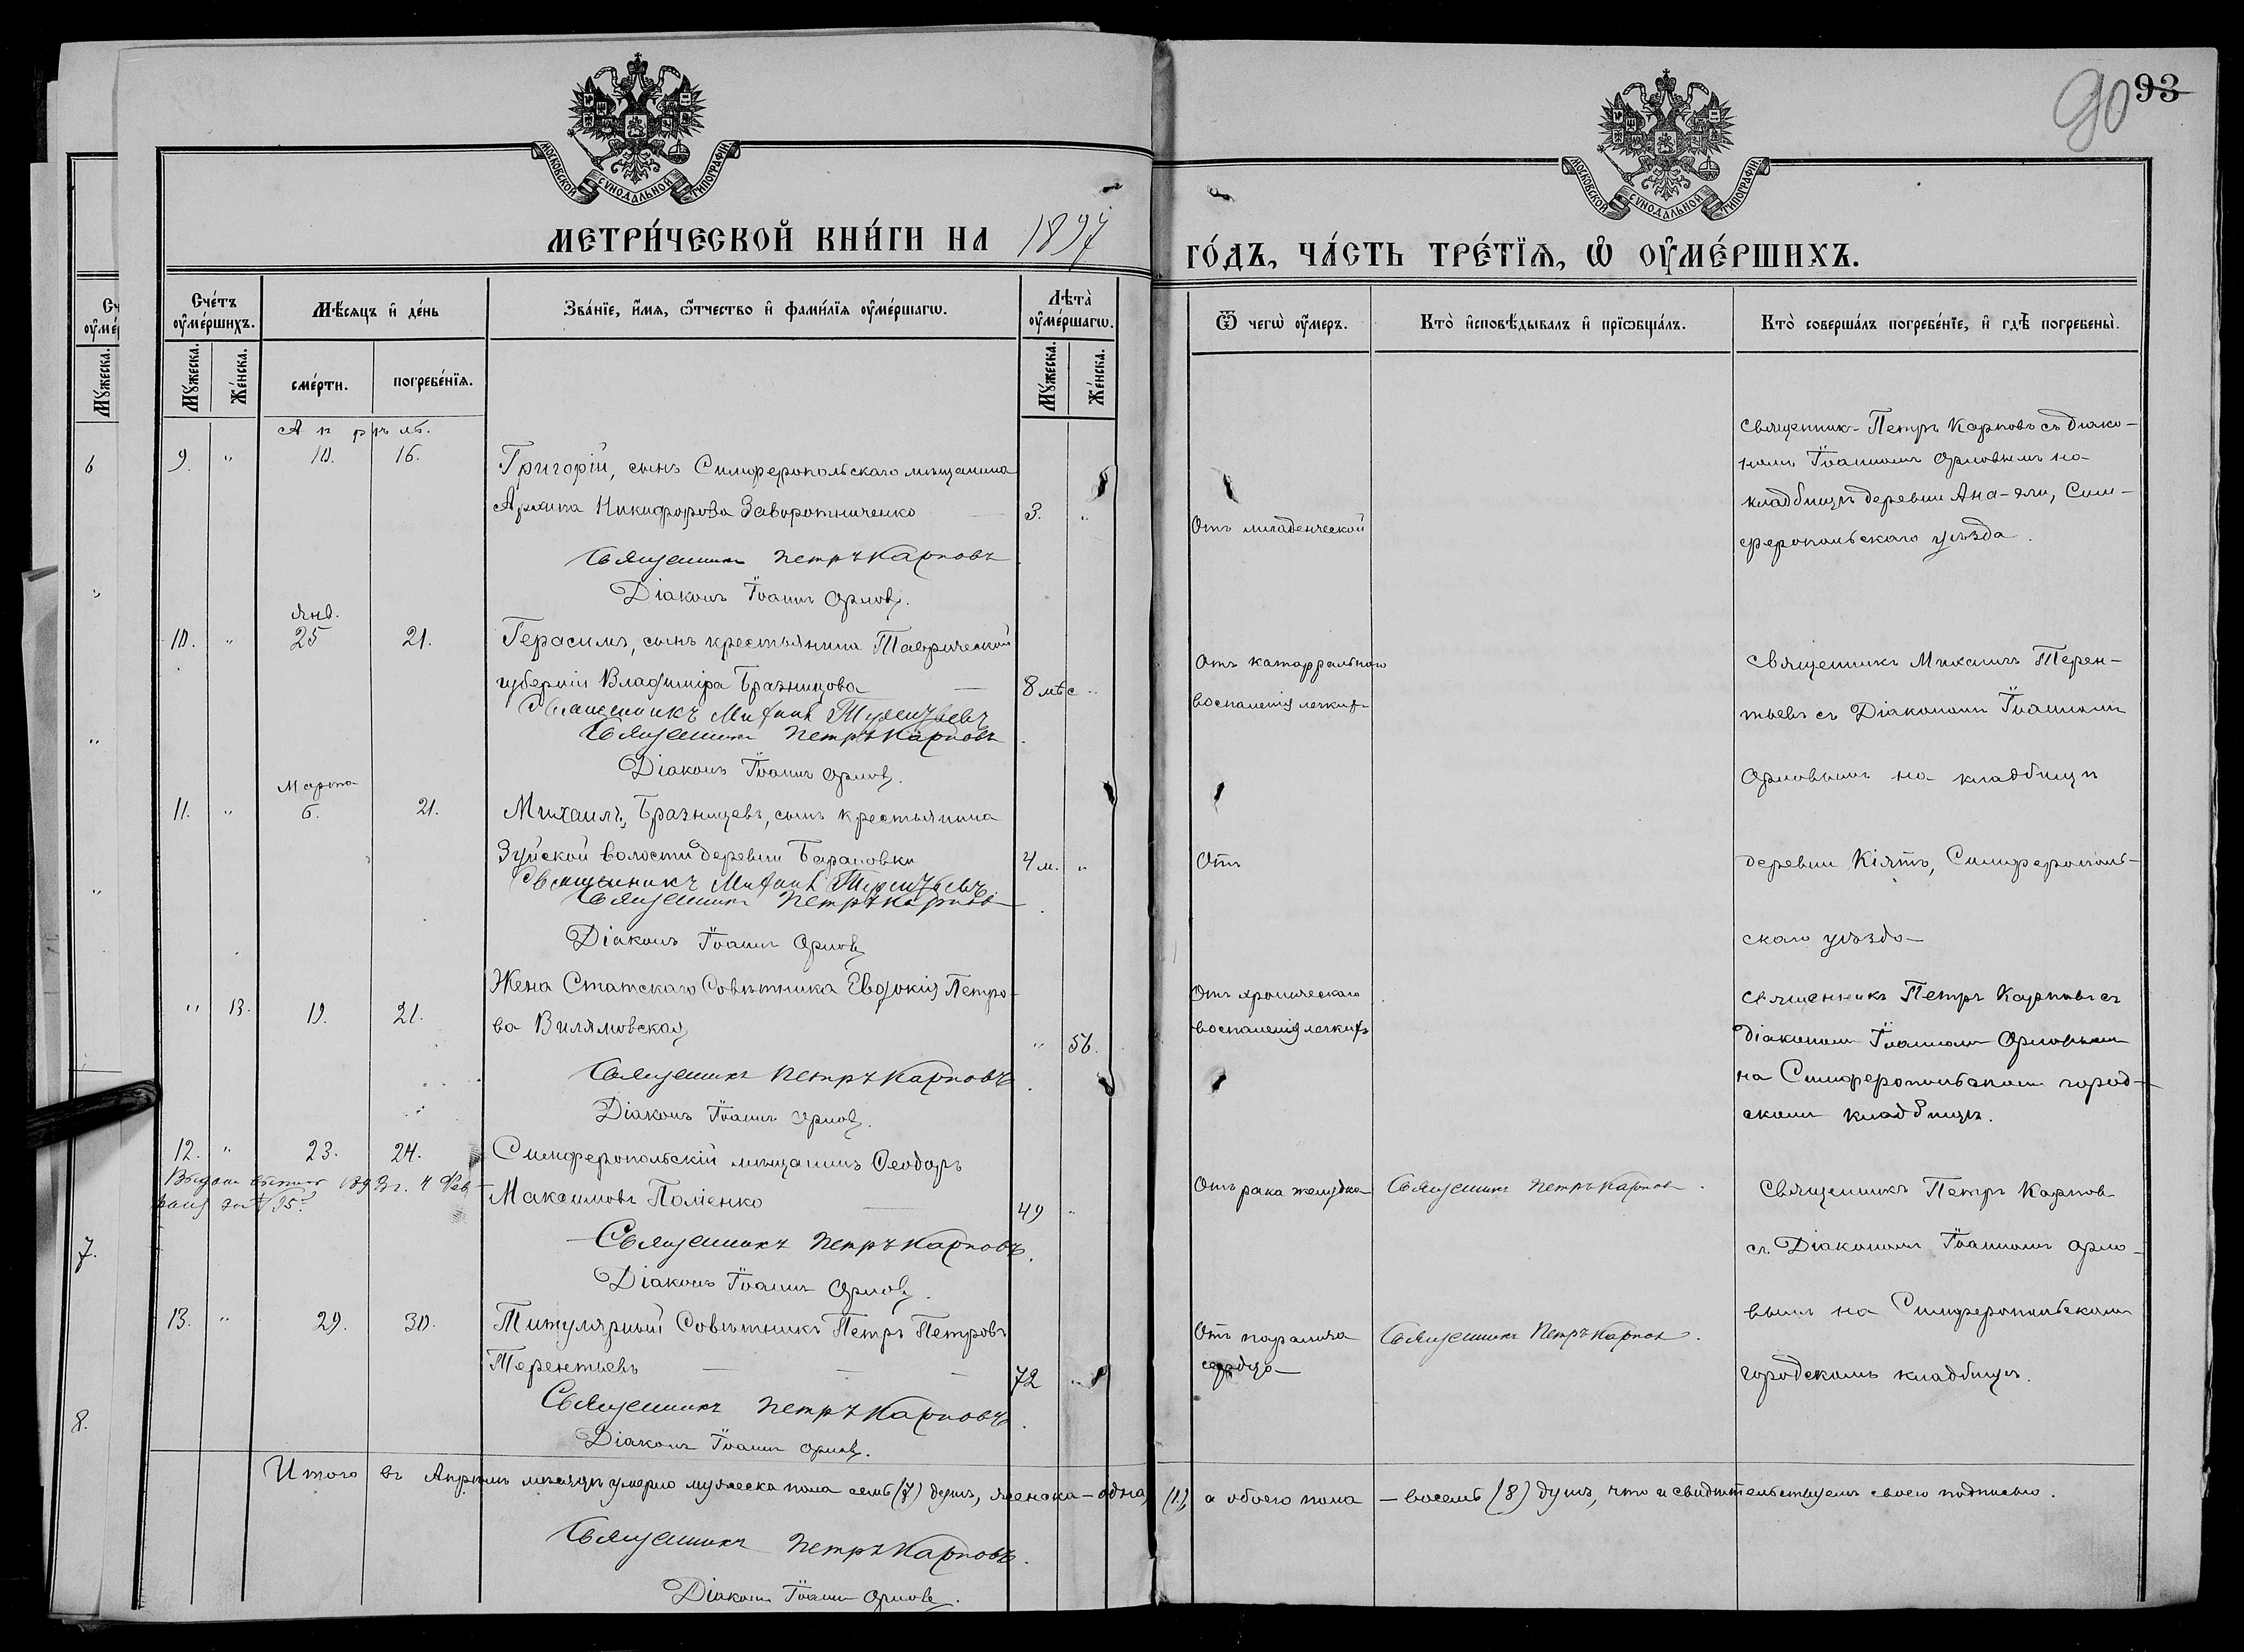 90 93
МОСКОВСКОЙ СУНОДАЛЬНОЙ ТИПОГРАФІИ
МОСКОВСКОЙ СУНОДАЛЬНОЙ ТИПОГРАФІИ
МЕТРИ́ЧЕСКОЙ КНИ́ГИ НА 1897
ГО́ДЪ, ЧА́СТЬ ТРЕ́ТЇѦ, Ѡ҆ ОУ҆МЕ́РШИХЪ.
Сче́тъ оу҆ме́ршихъ.
Мꙋ́жеска.
Же́нска.
Мѣ́сѧцъ и҆ де́нь
сме́рти.
погребе́нїѧ.
Зва́нїе, и҆́мѧ, ѻ҆́тчество и҆ фами́лїѧ оу҆ме́ршагѡ.
Лѣ́та̀ оу҆ме́ршагѡ.
Мꙋ́жеска.
Же́нска.
Ѿ чегѡ̀ оу҆́меръ.
Кто̀ и҆сповѣ́дывалъ и҆ прїѡбща́лъ.
Кто̀ соверша́лъ погребе́нїе, и҆ гдѣ̀ погребены̀.
Апрѣль.
9. " 10. 16.
Григорій, сынъ Симферопольскаго мѣщанина
Архипа Никифорова Заворотниченко 3. "
Священникъ Петръ Карповъ
Діаконъ Іоаннъ Орловъ.
Отъ младенческой
Священникъ Петръ Карповъ съ діако-
номъ Іоанномъ Орловымъ на
кладбищѣ деревни Ана-эли, Сим-
феропольскаго уѣзда.
Янв.
10. " 25 21.
Герасимъ, сынъ крестьянина Таврической
губерніи Владиміра Бразницова 8 мѣс "
Священникъ Михаилъ Терентьевъ
Священникъ Петръ Карповъ
Діаконъ Іоаннъ Орловъ.
Отъ катарральнаго
воспаленія легкихъ
Священникъ Михаилъ Терен-
тьевъ съ Діакономъ Іоанномъ
Орловымъ на кладбищѣ
Марта
11. " 6. 21.
Михаилъ Бразницевъ, сынъ крестьянина
Зуйской волости деревни Барановки 4 м. "
Священникъ Михаилъ Терентьевъ
Священникъ Петръ Карповъ
Діаконъ Іоаннъ Орловъ
Отъ
деревни Кіятъ, Симферополь-
скаго уѣзда
" 13. 19. 21.
Жена Статскаго Совѣтника Евдокія Петро-
ва Вилямовская " 56.
Священникъ Петръ Карповъ
Діаконъ Іоаннъ Орловъ.
Отъ хроническаго
воспаленія легкихъ
Священникъ Петръ Карповъ съ
діакономъ Іоанномъ Орловымъ
на Симферопольскомъ город-
скомъ кладбищѣ.
12. " 23. 24.
Симферопольскій мѣщанинъ Ѳеодоръ
Максимовъ Поліенко 49 "
Священникъ Петръ Карповъ.
Діаконъ Іоаннъ Орловъ.
Отъ рака желудка
Священникъ Петръ Карповъ.
Священникъ Петръ Карповъ
съ Діакономъ Іоанномъ Орло-
вымъ на Симферопольскомъ
городскомъ кладбищѣ.
13. " 29. 30.
Титулярный Совѣтникъ Петръ Петровъ
Терентьевъ 72 "
Священникъ Петръ Карповъ.
Діаконъ Іоаннъ Орловъ.
Отъ паралича
сердца
Священникъ Петръ Карповъ.
Итого въ Апрѣлѣ мѣсяцѣ умерло мужеска пола семь (7) душъ, женска - одна, (1.), а обоего пола - восемь (8) душъ, что и свидѣтельствуемъ своею подписью.
Священникъ Петръ Карповъ.
Діаконъ Іоаннъ Орловъ.
6
7.
8.